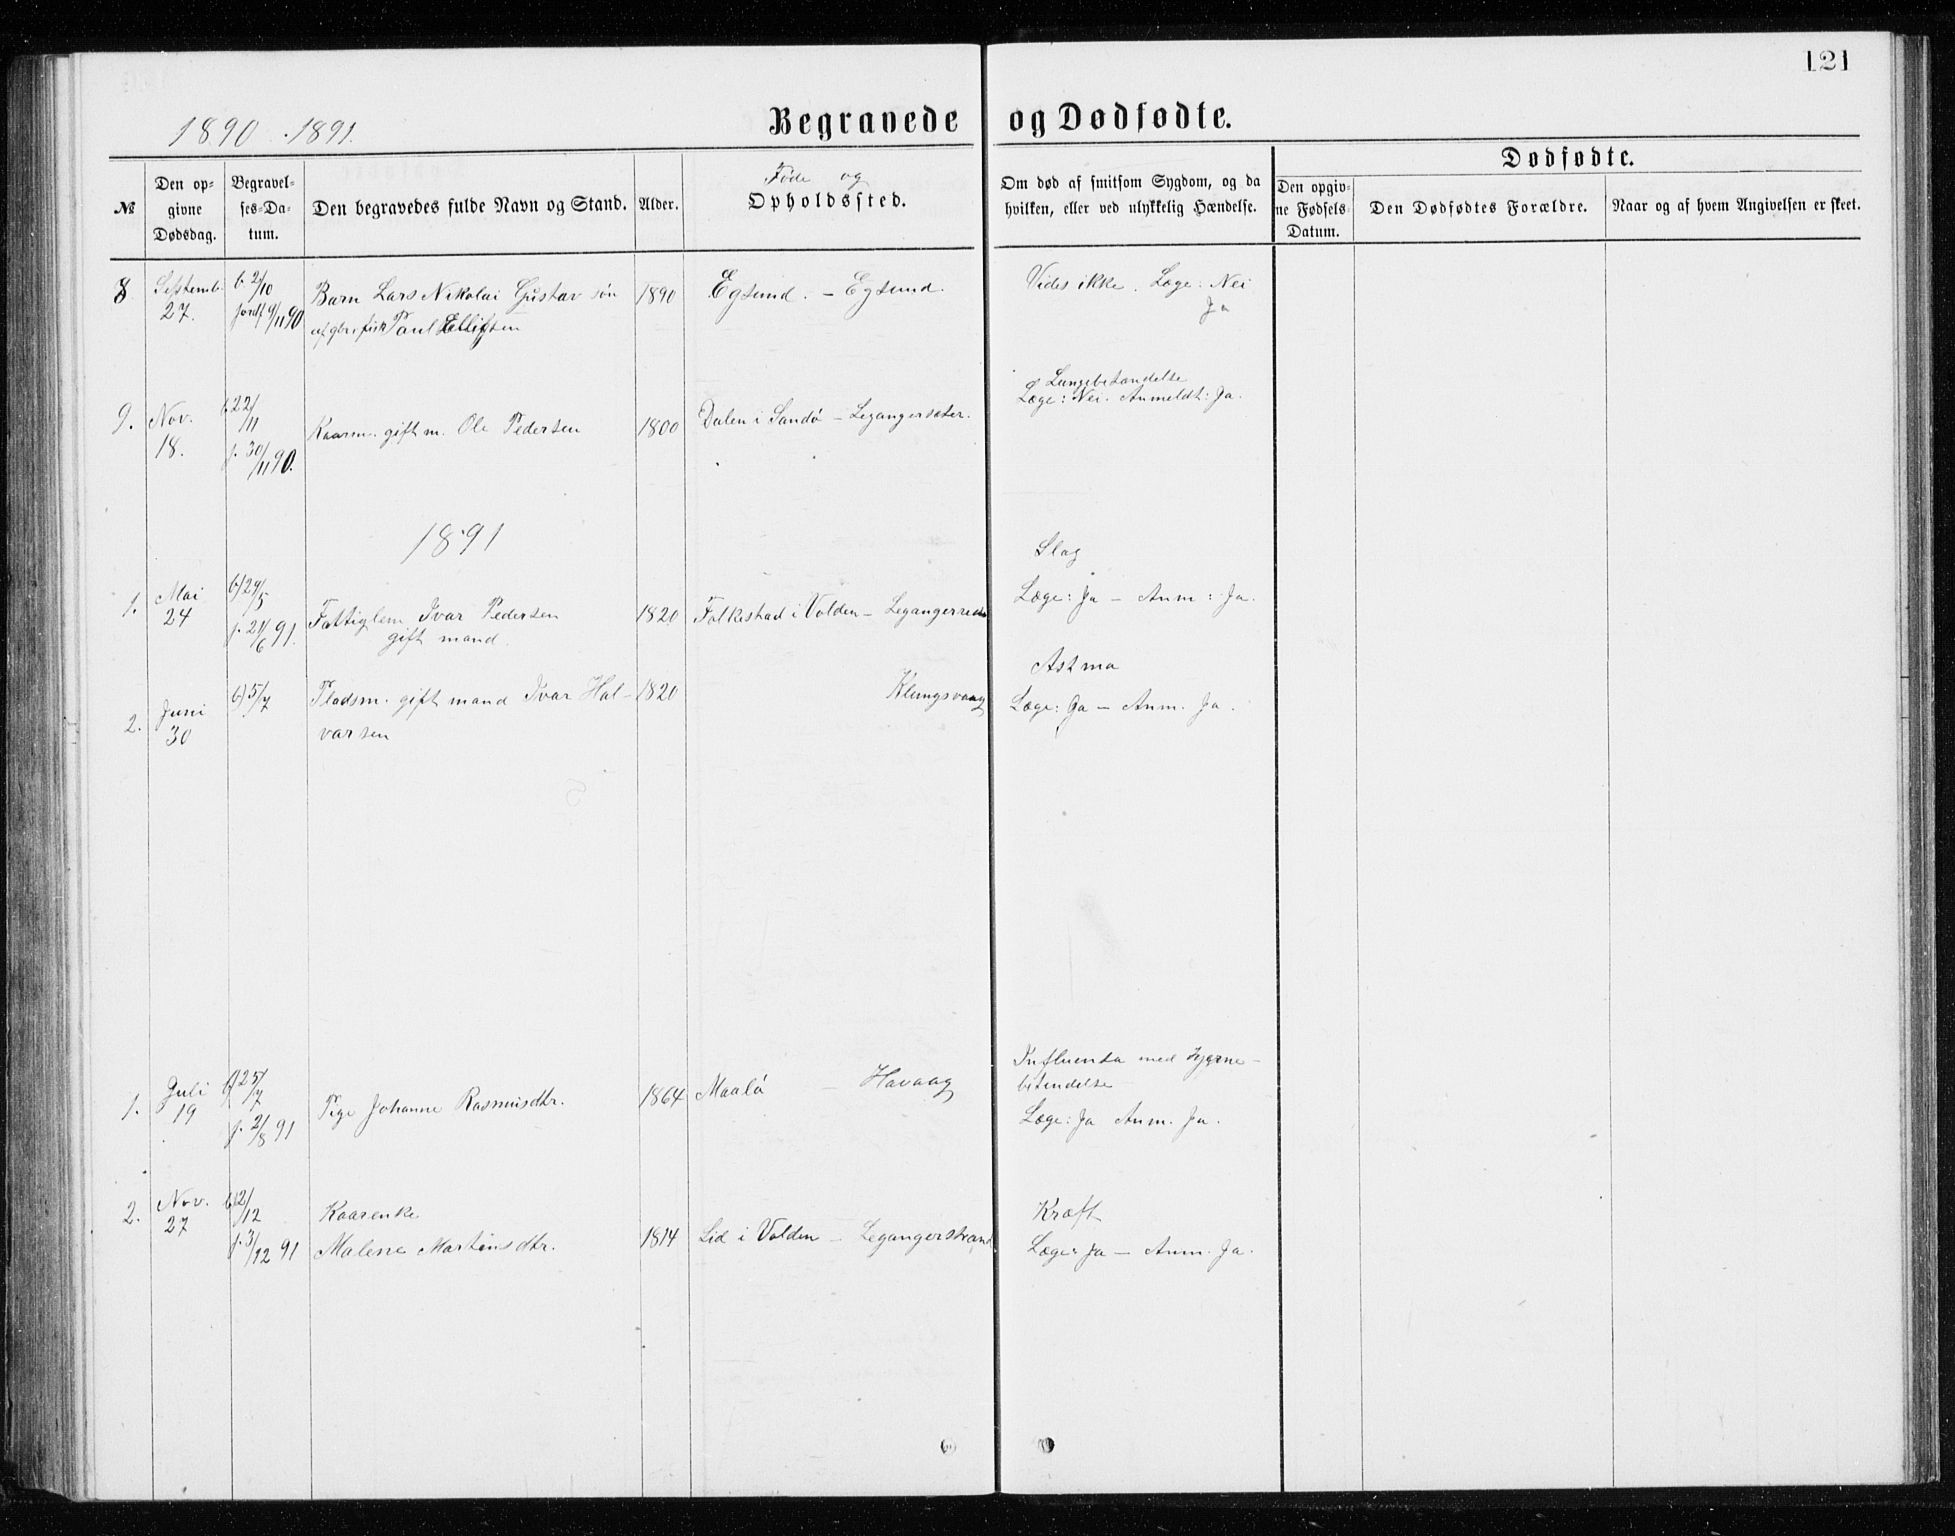 121
1890-1891.
Begravede og Dødfødte.
№
Den opgivne Dødsdag.
Begravelses-Datum.
Den begravedes fulde Navn og Stand.
Alder.
Føde og
Opholdssted.
Om død af smitsom Sygdom, og da hvilken, eller ved ulykkelig Hændelse.
Dødfødte.
Den opgivne Fødsels Datum.
Den Dødfødtes Forældre.
Naar og af hvem Angivelsen er skeet.
8 Septemb. b. 2/10 Barn Lars Nikolai Gustav søn 1890 Egsund. - Egsund. Vides ikke. Læge: Nei
27. jordf 9/11 90 af gbr. fisk Paul Ellifsen Ja
Lungebetændelse
9. Nov. b. 22/11 Kaarm. gift m. Ole Pedersen 1800 Dalen i Sandø - Legangersæter. Læge: Nei. Anmeldt: Ja.
18. j. 30/11 90.
1891
Slag
1. Mai b) 29/5 Fattiglem Ivar Pedersen 1820 Folkestad i Volden - Læge: Ja - Anm: Ja.
24 j. 21/6 91. gift mand.
Astma
2. Juni b) 5/7 Pladsm. gift mand Ivar Hal- 1820 Klungsvaag Læge: Ja - Anm. Ja.
30 varsen
Influensa med Hjerne-
betændelse
1. Juli b) 25/7 Pige Johanne Rasmusdtr. 1864 Maalø - Havaag
19 j. 2/8 91 Læge: Ja Anm. Ja.
2. Nov. b) 2/12 Kaarenke Kræft
27 j. 3/12 91 Malene Martinsdtr. 1814 Lid i Volden - Legangerstrand Læge: Ja - Anm. Ja.